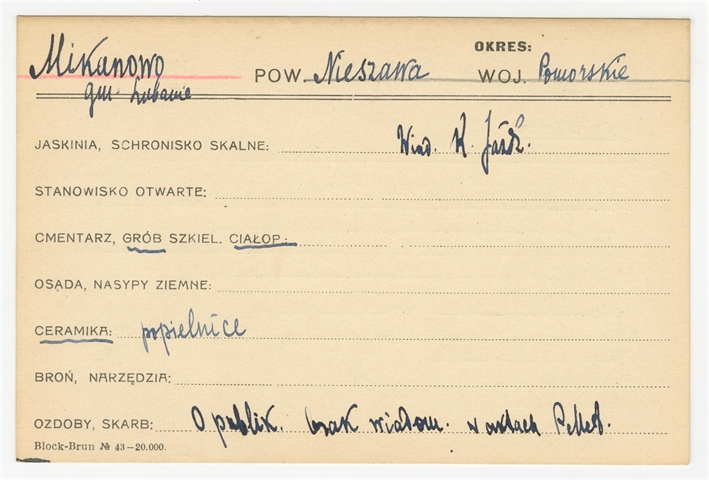 OKRES:
Mikanowo POW. Nieszawa WOJ. Pomorskie
gm. Lubanie
JASKINIA, SCHRONISKO SKALNE: Wiad. K.
STANOWISKO OTWARTE:
CMENTARZ, GRÓB SZKIEL. CIAŁOP.:
OSADA, NASYPY ZIEMNE:
CERAMIKA: popielnice
BROŃ, NARZĘDZIA:
OZDOBY, SKARB: O publik. brak wiadom. w aktach
Block-Brun № 43-20.000.